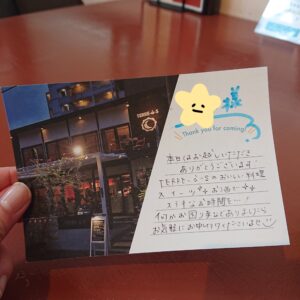 TERRE-お-る
様
Thank you for coming!
本日はお越しいただき
ありがとうございます!
のおいしい料理
スイーツ
ステキなお時間を…!
何かお困り事などありましたら
お気軽にお申し付け下さいませ